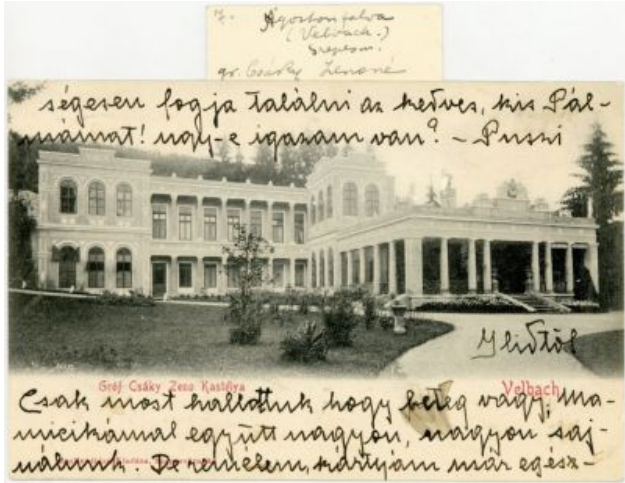 Ágostonfalva
(Velbach.)
Szepesm.
gr. Csáky Zenoné
ségesen fogja találni az kedves, kis Pál-
mámat! ugy-e igazam van? - Puszi
Ylidtől
Gróf Csáky Zeno Kastélya
Velbach
Csak most hallottuk hogy beteg vagy, Ma-
micikámal együtt nagyon, nagyon saj-
nálunk. Remélem, kártyám már egész-